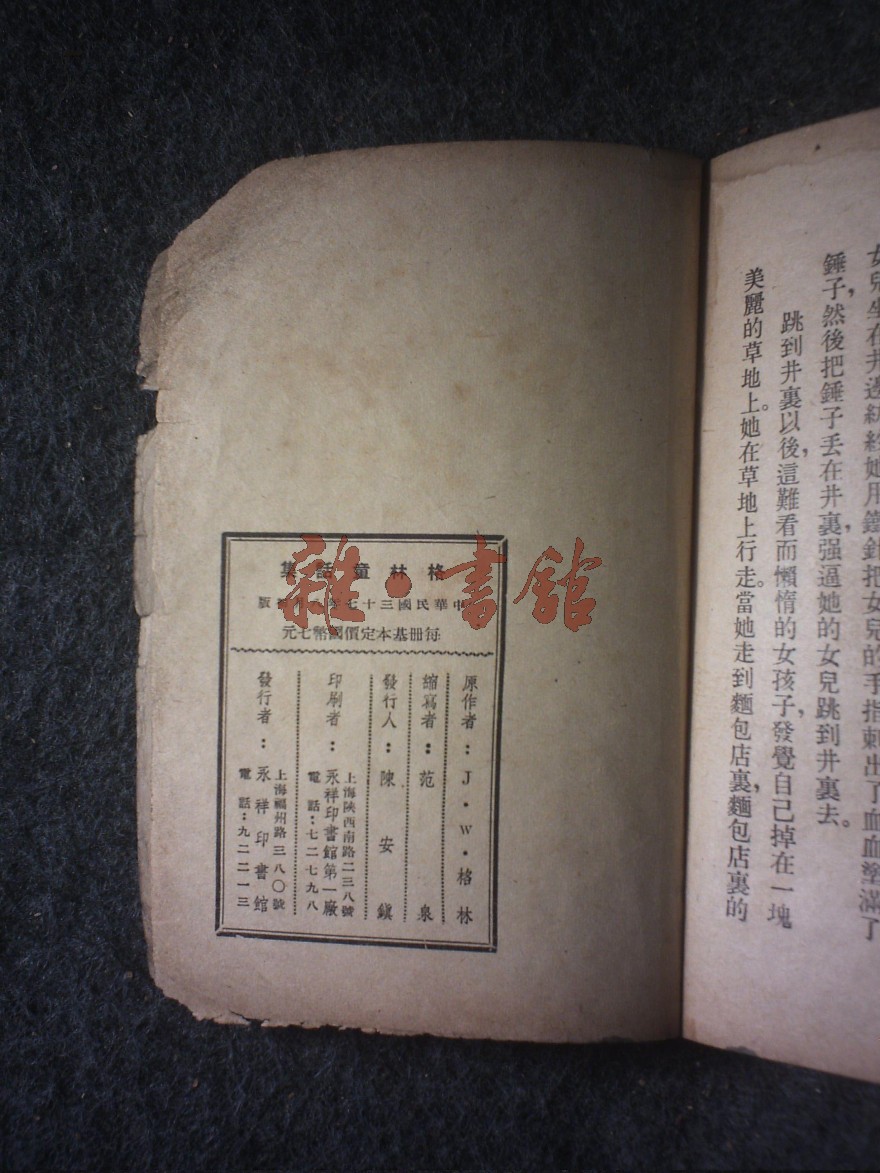 女兒坐在井邊紡紗她用鐵針把女兒的手指刺出了血血塗滿了
錘子,然後把錘子丟在井裏,强逼她的女兒跳到井裏去。
跳到井裏以後,這難看而懶惰的女孩子,發覺自己掉在一塊
美麗的草地上。她在草地上行走。當她走到麵包店裏,麵包店裏的
格林童話集
中華民國三十七年 版
每冊基本定價國幣七元
原作者:J·W·格林
縮寫者:范泉
發行人:陳安鎮
印刷者:永祥印書館第一廠
上海陝西南路二三八號
電話:七二七九八
發行者:永祥印書館
上海福州路三八〇號
電話:九二二一三
雜·書館